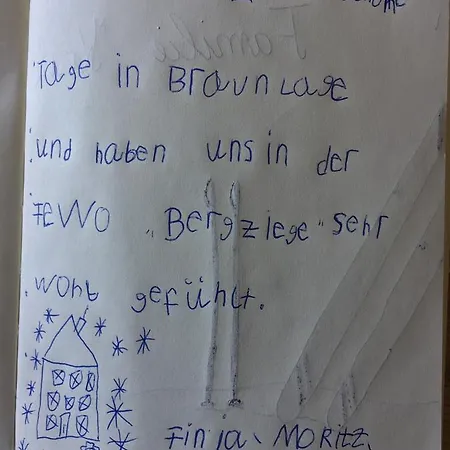 Tage in Braunlage
und haben uns in der
FEWO „Bergziege“ sehr
wohl gefühlt.
Finja, MORITZ,